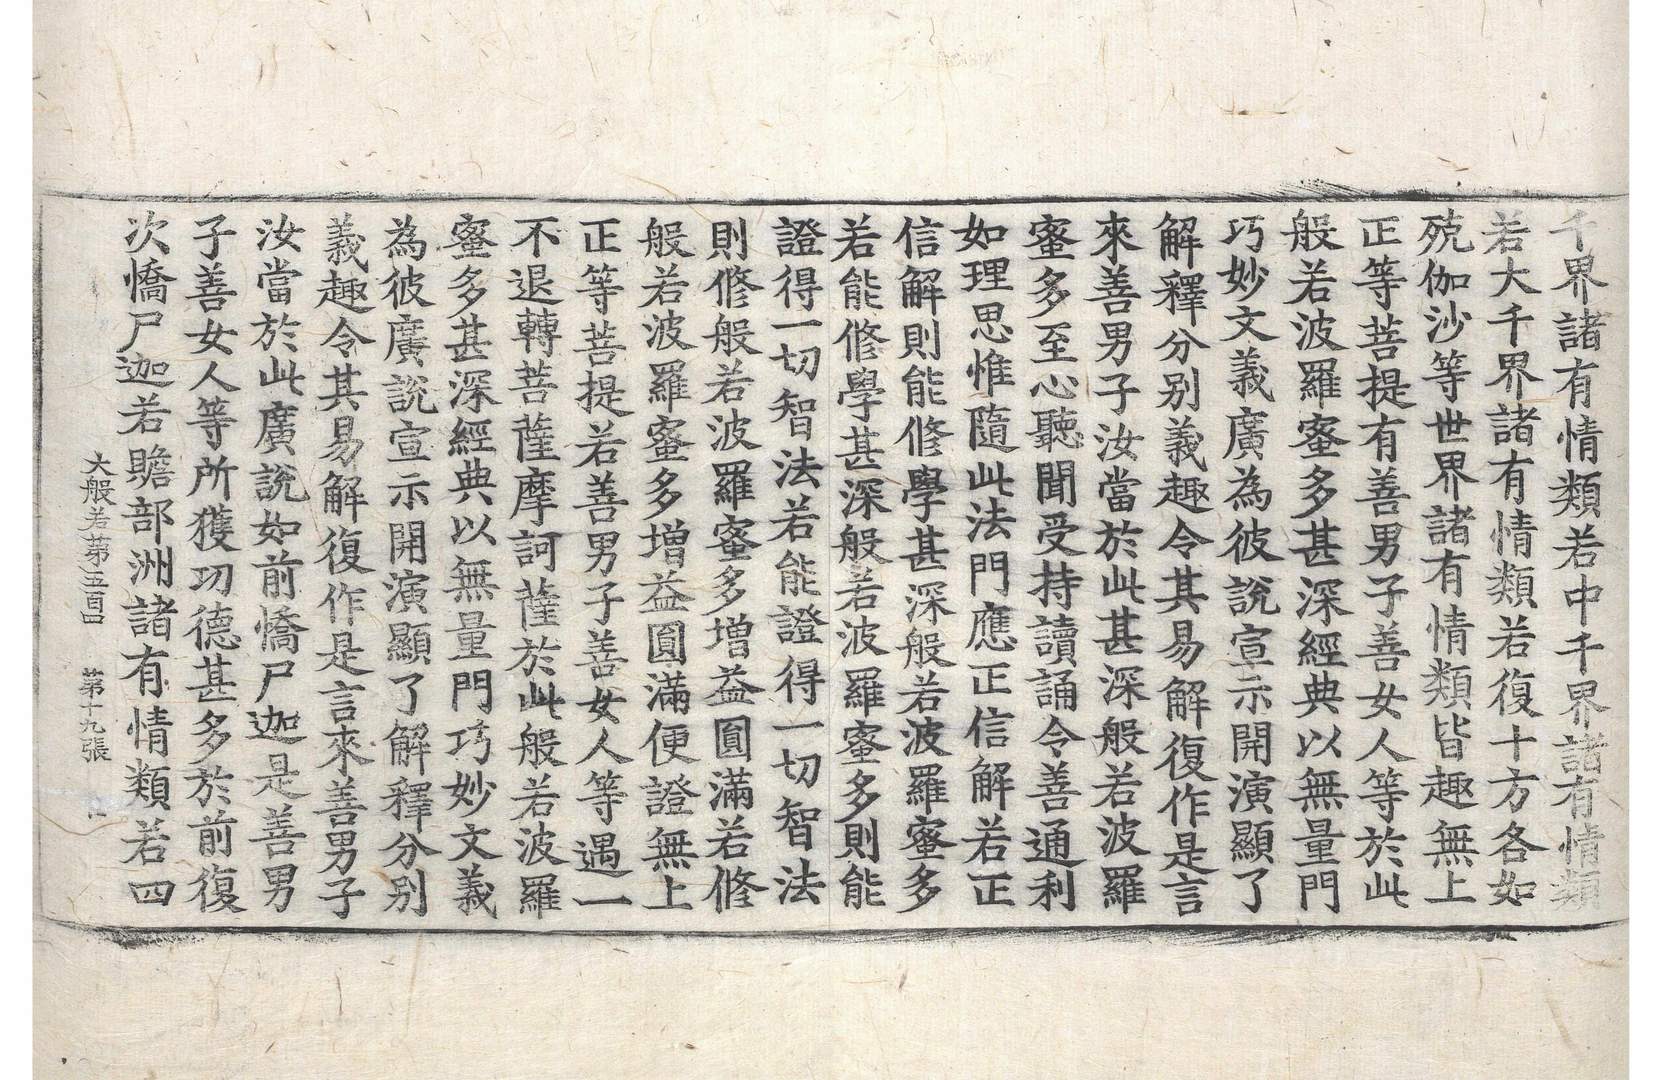 千界諸有情類若中千界諸有情類
若大千界諸有情類若復十方各如
殑伽沙等世界諸有情類皆趣無上
正等菩提有善男子善女人等於此
般若波羅蜜多甚深經典以無量門
巧妙文義廣為彼說宣示開演顯了
解釋分別義趣令其易解復作是言
來善男子汝當於此甚深般若波羅
蜜多至心聽聞受持讀誦令善通利
如理思惟隨此法門應正信解若正
信解則能修學甚深般若波羅蜜多
若能修學甚深般若波羅蜜多則能
證得一切智法若能證得一切智法
則修般若波羅蜜多增益圓滿若修
般若波羅蜜多增益圓滿便證無上
正等菩提若善男子善女人等遇一
不退轉菩薩摩訶薩於此般若波羅
蜜多甚深經典以無量門巧妙文義
為彼廣說宣示開演顯了解釋分別
義趣令其易解復作是言來善男子
汝當於此廣說如前憍尸迦是善男
子善女人等所獲功德甚多於前復
次憍尸迦若贍部洲諸有情類若四
大般若第五百四 第十九張